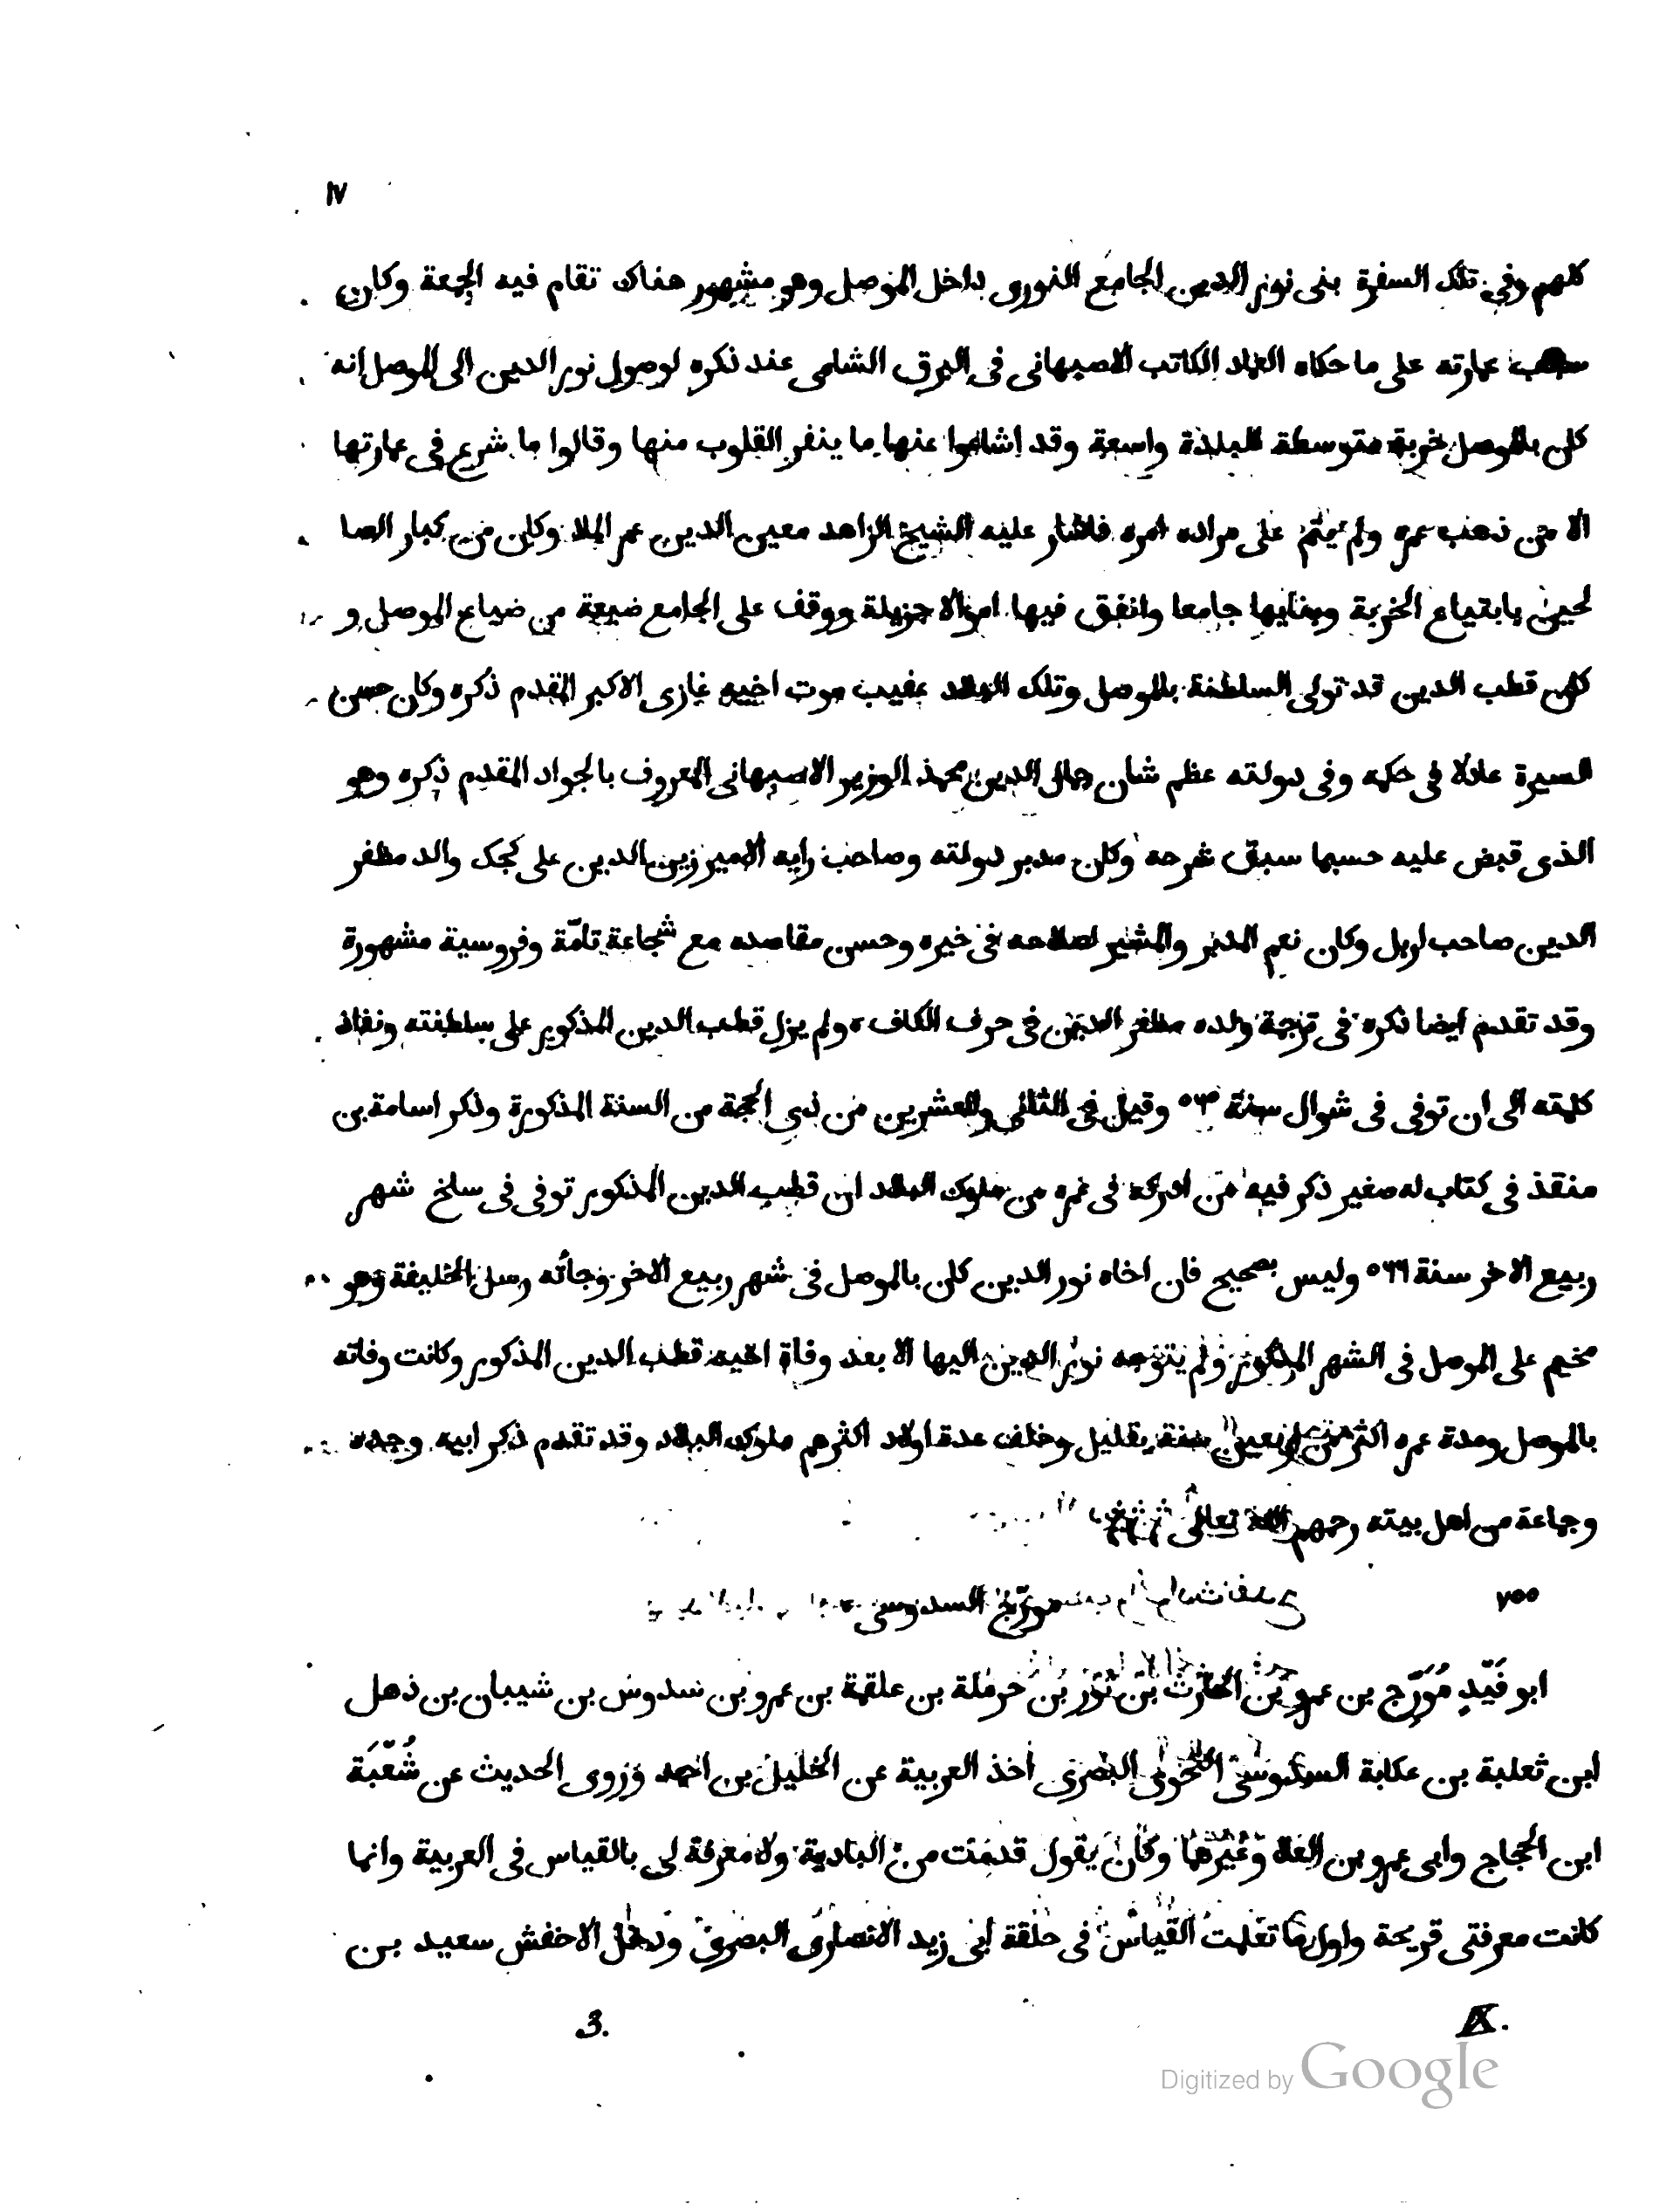 ١٧
كلهم وفي تلك السفرة بنى نور الدين الجامع النورى داخل الموصل وهو مشهور هناك تقام فيه الجمعة وكان
سبب عمارته على ما حكاه العماد الكاتب الاصبهانى فى البرق الشامى عند ذكره لوصول نور الدين الى الموصل انه
كان بالموصل خربة متوسطة للبلدة واسعة وقد اشاعوا عنها ما ينفر القلوب منها وقالوا ما شرع فى عمارتها
الا من ذهب عمره ولم يتم على مراده امره فاشار عليه الشيخ الزاهد معين الدين عمر الملا وكان من كبار الصا
لحين بابتياع الخربة وبنايها جامعا وانفق فيها اموالا جزيلة ووقف على الجامع ضيعة من ضياع الموصل و
كان قطب الدين قد تولى السلطنة بالموصل وتلك البلاد عقيب موت اخيه غازى الاكبر المقدم ذكره وكان حسن
السيرة عادلا فى حكمه وفى دولته عظم شان جمال الدين محمد الوزير الاصبهانى المعروف بالجواد المقدم ذكره وهو
الذى قبض عليه حسبما سبق شرحه وكان مدبر دولته وصاحب رايه الامير زين الدين على كجك والد مظفر
الدين صاحب اربل وكان نعم المدبر والمشير لصلاحه فى خيره وحسن مقاصده مع شجاعة تامّة وفروسية مشهورة
وقد تقدم ايضا ذكره فى ترجمة ولده مظفر الدين فى حرف الكاف ٥ ولم يزل قطب الدين المذكور على سلطنته ونفاذ
كلمته الى ان توفى فى شوال سنة ٥٦٥ وقيل فى الثانى والعشرين من ذى الحجة من السنة المذكورة وذكر اسامة بن
منقذ فى كتاب له صغير ذكر فيه من ادركه فى عمره من ملوك البلاد ان قطب الدين المذكور توفى فى سلخ شهر
ربيع الاخر سنة ٥٦٦ وليس بصحيح فان اخاه نور الدين كان بالموصل فى شهر ربيع الاخر وجائه رسل الخليفة وهو
مخيم على الموصل فى الشهر المذكور ولم يتوجه نور الدين اليها الا بعد وفاة اخيه قطب الدين المذكور وكانت وفاته
بالموصل ومدة عمره اكثر من اربعين سنة بقليل وخلف عدة اولاد اكثرهم ملوك البلاد وقد تقدم ذكر ابيه وجده
وجماعة من اهل بيته رحمهم الله تعالى
٧٥٥
مورّج السدوسى
ابو فَيّد مُوَرِّج بن عمرو بن الحارث بن ثور بن حرملة بن علقمة بن عمرو بن سدوس بن شيبان بن ذهل
ابن ثعلبة بن عكابة السدوسى النحوى البصرى اخذ العربية عن الخليل بن احمد وروى الحديث عن شُعْبَة
ابن الحجاج وابى عمرو بن العلا وغيرهما وكان يقول قدمت من البادية ولا معرفة لى بالقياس فى العربية وانما
كانت معرفتى قريحة واول ما تعلمت القياس فى حلقة ابى زيد الانصارى البصرى ودخل الاخفش سعيد بن
3. IX.
Digitized by Google